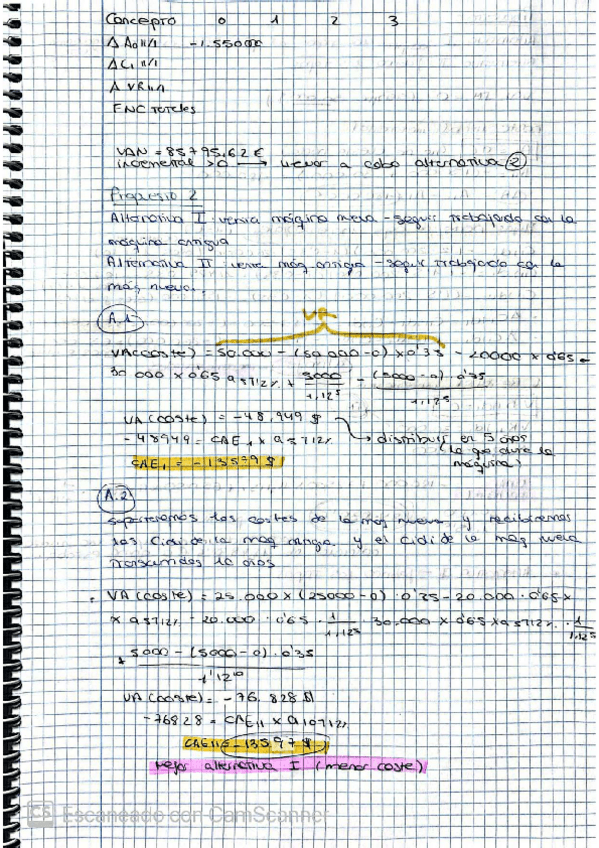 Concepto 0 1 2 3
Δ Ao II/I -1.550000
Δ C, II/I
Δ VR II/I
FNC Totales
VAN = 85795,62 €
incremental >0 → llevar a cabo alternativa ②
Propuesto 2
Alternativa I: venta máquina nueva - seguir trabajando con la
máquina antigua
Alternativa II: venta máq antigua - seguir trabajando con la
máq nueva.
A.1
VR
VA(coste) = 50.000 - (50.000-0) x 0'35 - 20000 x 0'65 -
30 000 x 0'65 a5712% + 5000/1,12⁵ - (5000-0) 0'35/1,12⁵
VA (coste) = -48.949 $
-48949 = CAE, x a5712% → distribuir en 5 años
(lo que dura la
máquina)
CAE, = -13579 $
A.2
soportaremos los costes de la maq nueva y recibiremos
los de la maq antigua y el de la maq nueva
transcurridos 10 años
VA (coste) = 25.000 x (25000-0) · 0'35 - 20.000 · 0'65 x
x a5712% - 20.000 · 0'65 · 1/1,12⁵ · 30.000 x 0'65 x a5712% · 1/1,12⁵
+ 5000 - (5000-0) · 0'35
1'12¹⁰
VA (coste) = -76.828 $
-76828 = CAE II x a10712%
CAE II = -13597 $
Mejor alternativa I (menor coste)
CS Escaneado con CamScanner